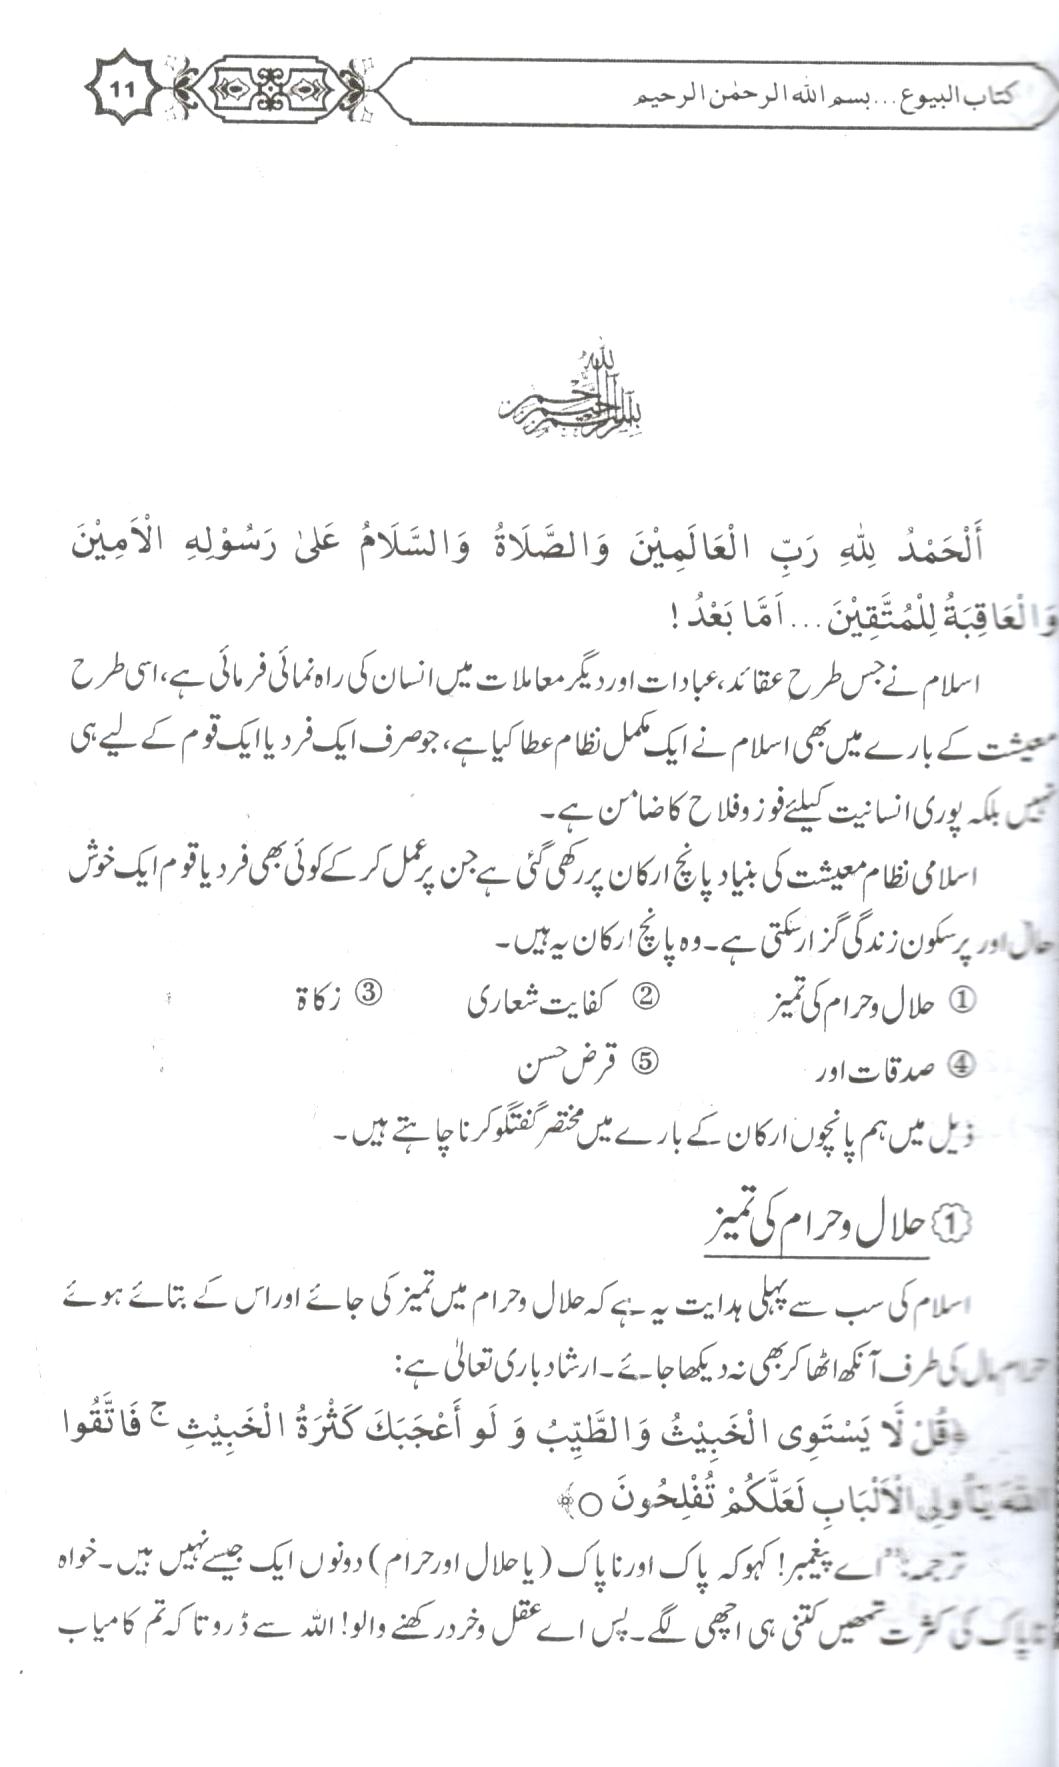 کتاب البیوع... بسم اللہ الرحمٰن الرحیم
11
بسم الله الرحمن الرحيم
أَلْحَمْدُ لِلّٰهِ رَبِّ الْعَالَمِيْنَ وَالصَّلَاةُ وَالسَّلَامُ عَلىٰ رَسُوْلِهِ الْاَمِيْنَ
وَالْعَاقِبَةُ لِلْمُتَّقِيْنَ... اَمَّا بَعْدُ!
اسلام نے جس طرح عقائد، عبادات اور دیگر معاملات میں انسان کی راہ نمائی فرمائی ہے، اسی طرح
معیشت کے بارے میں بھی اسلام نے ایک مکمل نظام عطا کیا ہے، جو صرف ایک فرد یا ایک قوم کے لیے ہی
نہیں بلکہ پوری انسانیت کیلئے فوز و فلاح کا ضامن ہے۔
اسلامی نظام معیشت کی بنیاد پانچ ارکان پر رکھی گئی ہے جن پر عمل کر کے کوئی بھی فرد یا قوم ایک خوش
حال اور پرسکون زندگی گزار سکتی ہے۔ وہ پانچ ارکان یہ ہیں۔
① حلال و حرام کی تمیز ② کفایت شعاری ③ زکاۃ
④ صدقات اور ⑤ قرض حسن
ذیل میں ہم پانچوں ارکان کے بارے میں مختصر گفتگو کرنا چاہتے ہیں۔
1 حلال و حرام کی تمیز
اسلام کی سب سے پہلی ہدایت یہ ہے کہ حلال و حرام میں تمیز کی جائے اور اس کے بتائے ہوئے
حرام مال کی طرف آنکھ اٹھا کر بھی نہ دیکھا جائے۔ ارشاد باری تعالیٰ ہے:
﴿قُلْ لَّا يَسْتَوِى الْخَبِيْثُ وَالطَّيِّبُ وَ لَو أَعْجَبَكَ كَثْرَةُ الْخَبِيْثِ ج فَاتَّقُوا
اللهَ يٰاُولِى الْاَلْبَابِ لَعَلَّكُمْ تُفْلِحُونَ ○﴾
ترجمہ: ”اے پیغمبر! کہو کہ پاک اور ناپاک (یا حلال اور حرام) دونوں ایک جیسے نہیں ہیں۔ خواہ
ناپاک کی کثرت تمھیں کتنی ہی اچھی لگے۔ پس اے عقل و خرد رکھنے والو! اللہ سے ڈرو تا کہ تم کامیاب